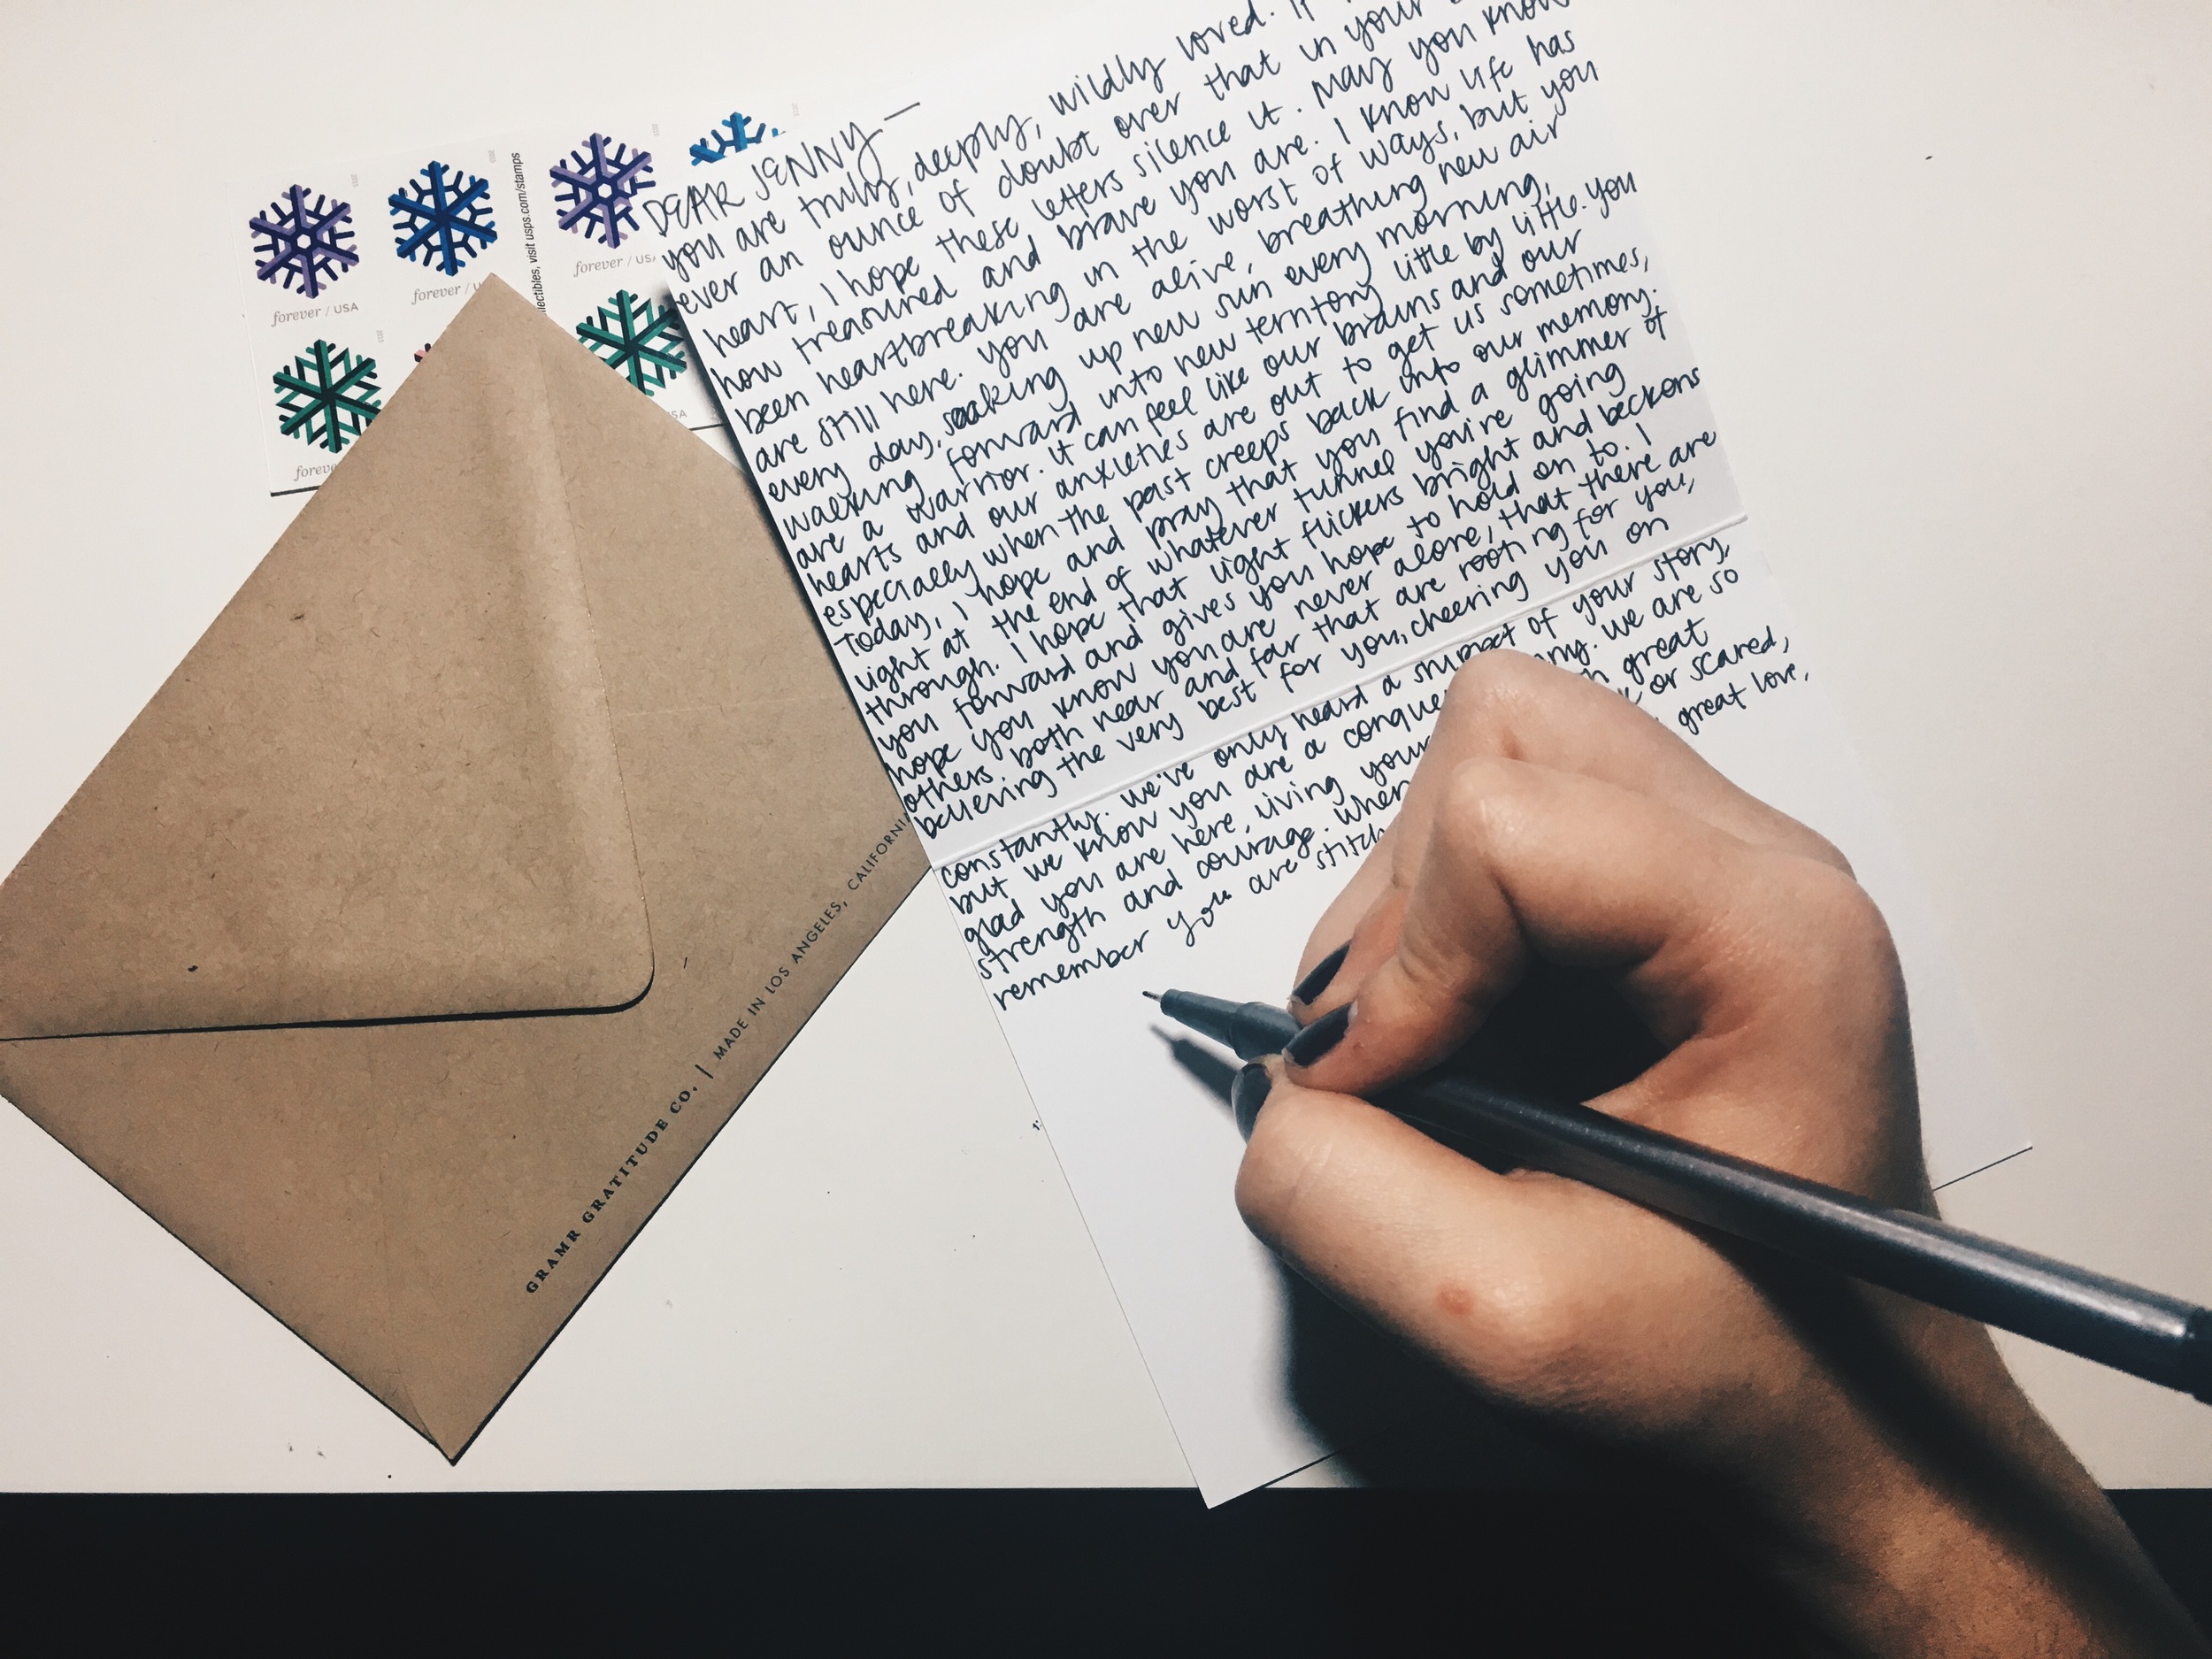 DEAR JENNY —
you are truly, deeply, wildly loved. If
ever an ounce of doubt over that in your
heart, I hope these letters silence it. May you know
how treasured and brave you are. I know life has
been heartbreaking in the worst of ways, but you
are still here. you are alive, breathing new air
every day, soaking up new sun every morning,
walking forward into new territory little by little. you
are a warrior. it can feel like our brains and our
hearts and our anxieties are out to get us sometimes,
especially when the past creeps back into our memory.
Today, I hope and pray that you find a glimmer of
light at the end of whatever tunnel you're going
through. I hope that light flickers bright and beckons
you forward and gives you hope to hold on to. I
hope you know you are never alone, that there are
others both near and far that are rooting for you,
believing the very best for you, cheering you on
constantly. we've only heard a snippet of your story,
but we know you are a we are so
glad you are here, living your great
strength and courage. when or scared,
remember you are great love,
forever / USA
forever / USA
forever / USA
visit usps.com/stamps
GRAMR GRATITUDE CO. | MADE IN LOS ANGELES, CALIFORNIA